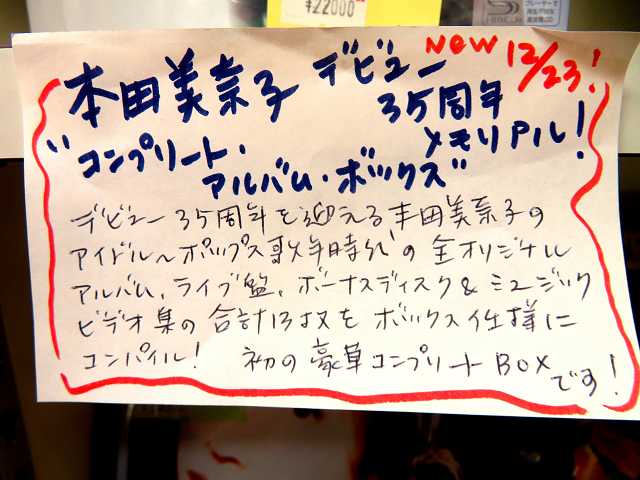 ¥22000
NEW 12/23!
本田美奈子 デビュー
35周年
メモリアル!
"コンプリート・
アルバム・ボックス"
デビュー35周年を迎える本田美奈子の
アイドル〜ポップス歌手時代の全オリジナル
アルバム、ライブ盤、ボーナスディスク&ミュージック
ビデオ集の合計13枚をボックス仕様に
コンパイル! 初の豪華コンプリートBOX
です!